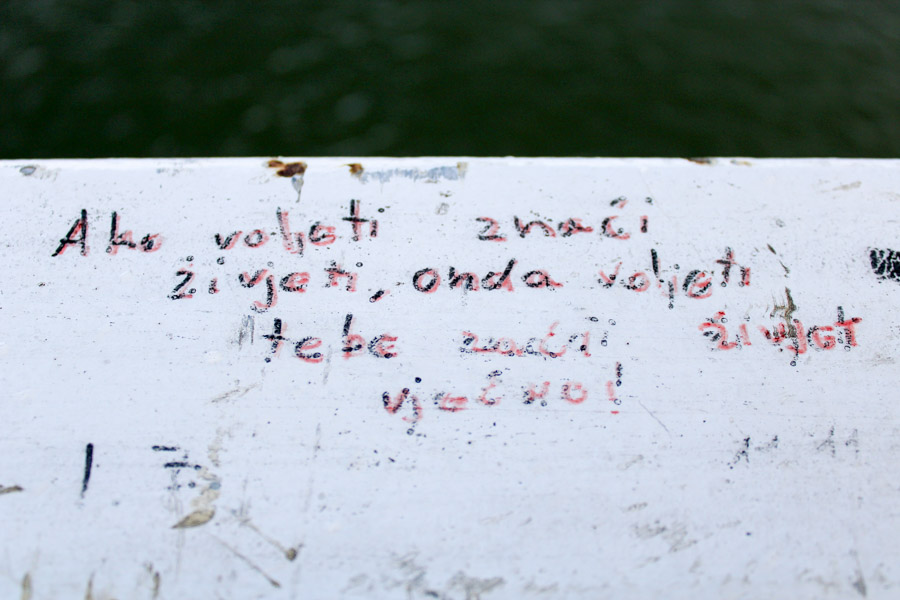 Ako voljeti znači
živjeti, onda voljeti
tebe znači živjet
vječno!